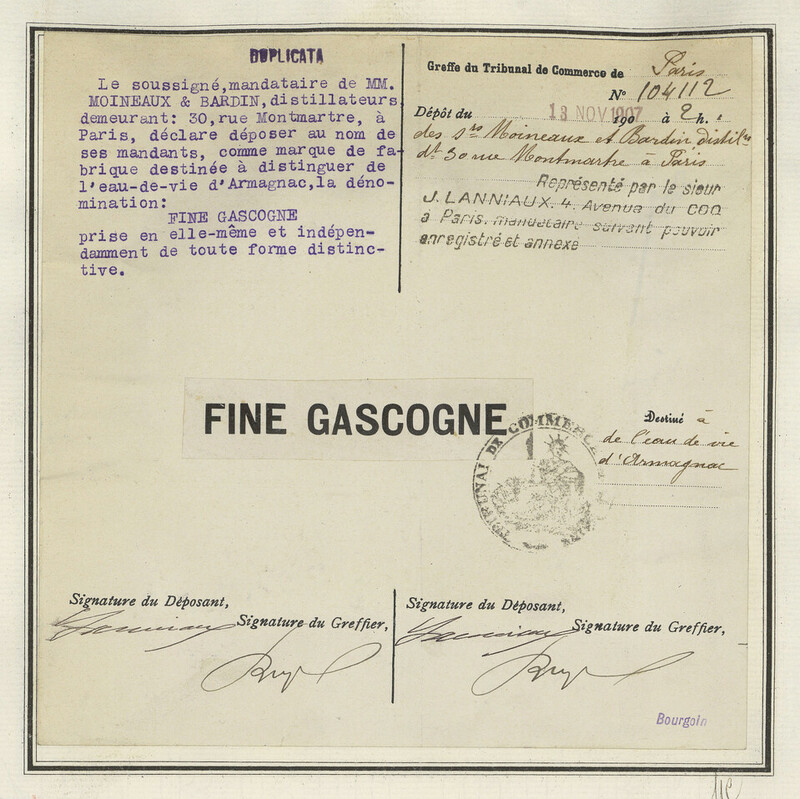 DUPLICATA
Le soussigné,mandataire de MM.
MOINEAUX & BARDIN,distillateurs
demeurant: 30,rue Montmartre, à
Paris, déclare déposer au nom de
ses mandants, comme marque de fa-
brique destinée à distinguer de
l'eau-de-vie d'Armagnac,la déno-
mination:
FINE GASCOGNE
prise en elle-même et indépen-
damment de toute forme distinc-
tive.
Greffe du Tribunal de Commerce de Paris
N° 104112
Dépôt du 13 NOV 1907 à 2 h.
des Srs Moineaux et Bardin distilrs
dt 30 rue Montmartre à Paris
Représenté par le sieur
J. LANNIAUX, 4, Avenue du COQ
à Paris, mandataire suivant pouvoir
enregistré et annexé
FINE GASCOGNE
TRIBUNAL DE COMMERCE
Destiné à
de l'eau de vie
d'Armagnac
Signature du Déposant,
Signature du Greffier,
Signature du Déposant,
Signature du Greffier,
Bourgoin